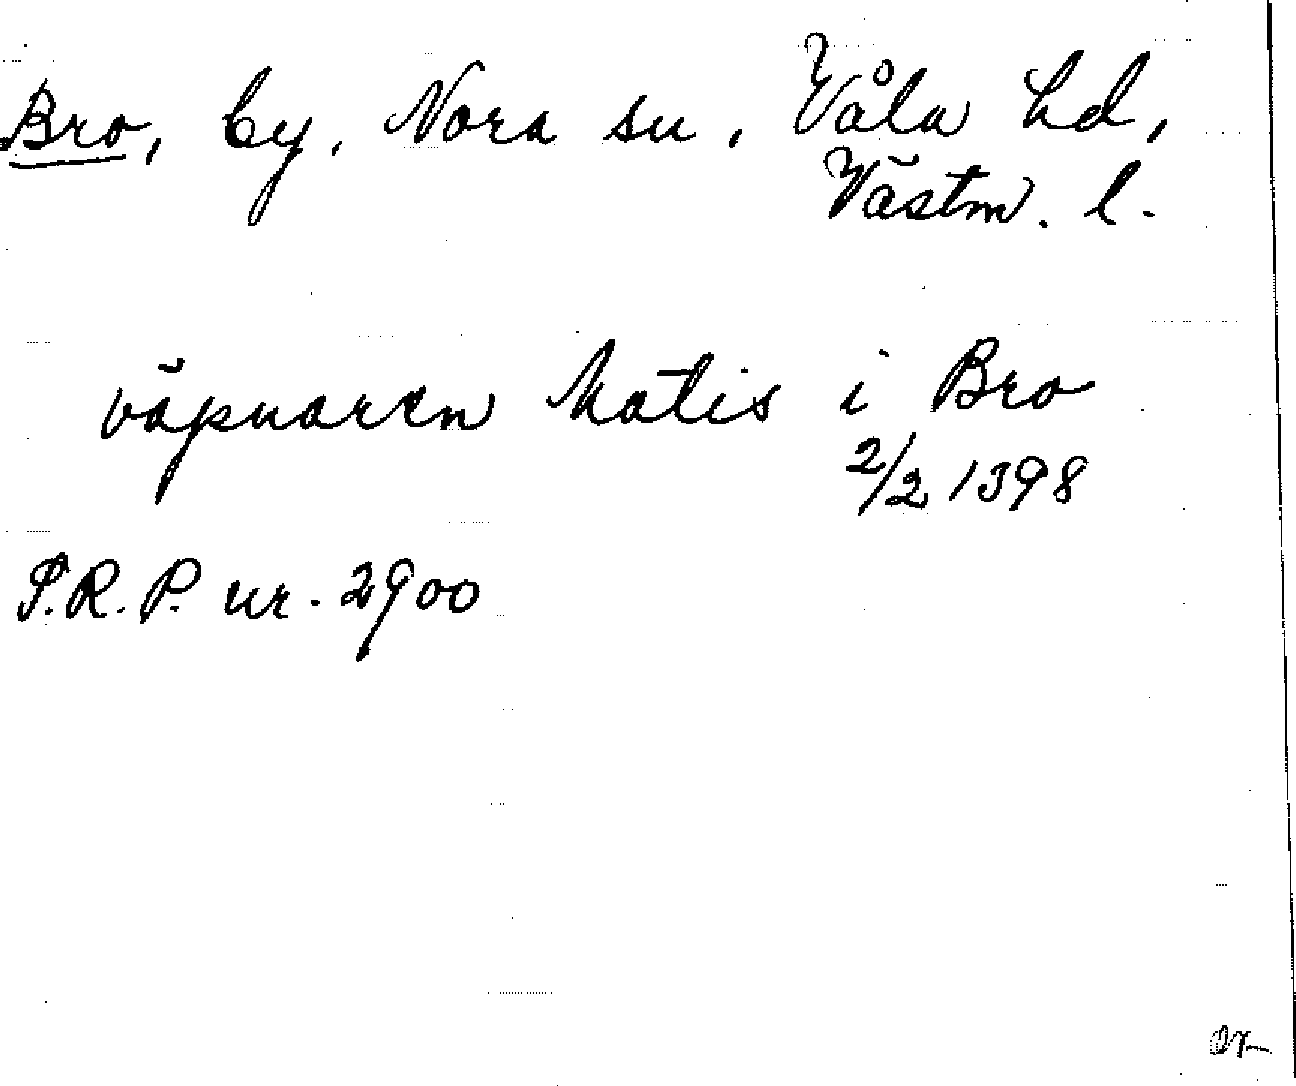 Bro, by, Nora sn, Våla hd,
Västm. l.
väpnaren Matis i Bro
2/2 1398
S.R.P. nr. 2900